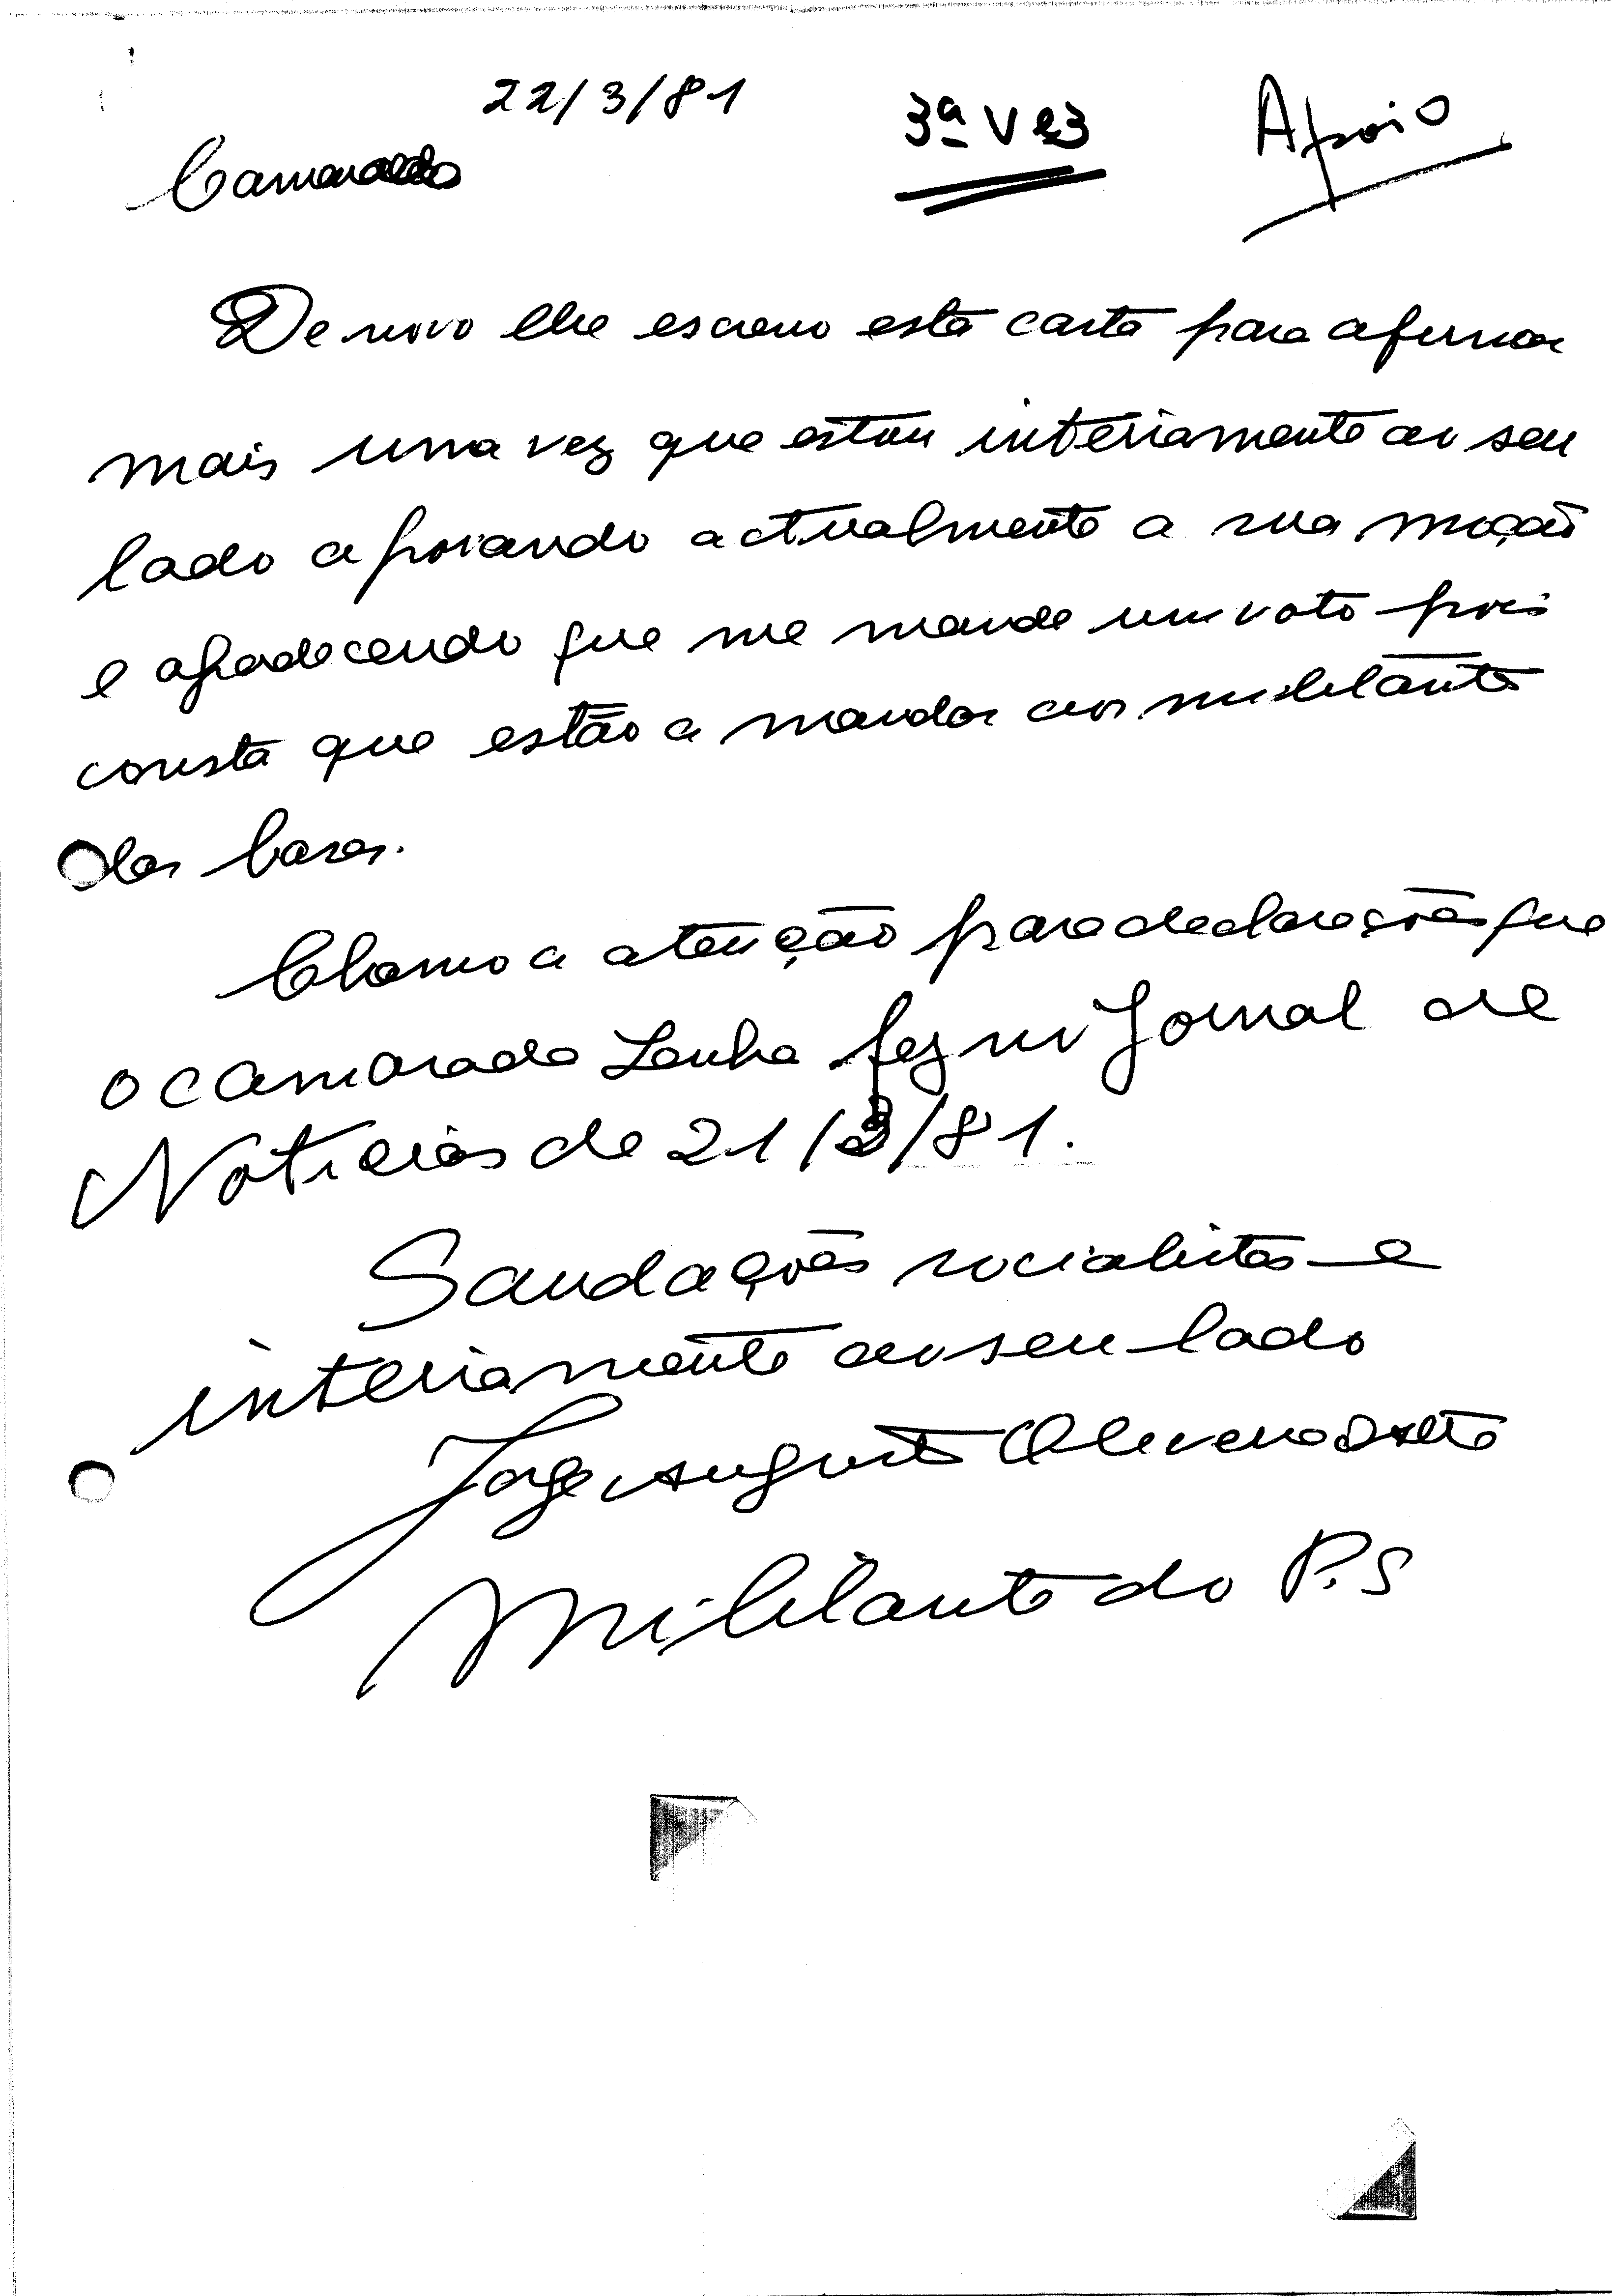 22/3/81
3ª Vez
Apoio
Camarada
De novo lhe escrevo esta carta para afirmar
mais uma vez que estou inteiramente ao seu
lado apoiando actualmente a sua moção
e agradecendo que me mande um voto pois
consta que estão a mandar aos militantes
das bases.
Chamo a atenção para declarações que
o camarada Zenha fez no Jornal de
Noticias de 21/3/81.
Saudações socialistas e
inteiramente ao seu lado
Jorge Augusto Oliveira
Militante do P.S